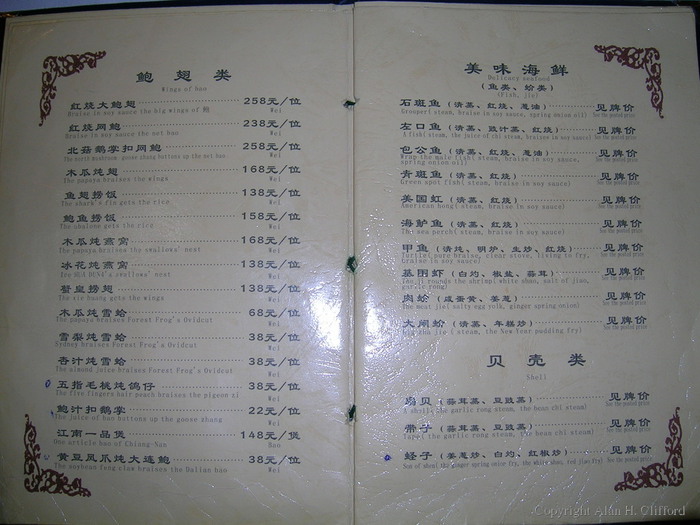 鲍翅类
Wings of bao
红烧大鲍翅 258元/位
Braise in soy sauce the big wings of 鲍 Wei
红烧网鲍 238元/位
Braise in soy sauce the net bao Wei
北菇鹅掌扣网鲍 258元/位
The north mushroom goose zhang buttons up the net bao Wei
木瓜炖翅 168元/位
The papaya braises the wings Wei
鱼翅捞饭 138元/位
The shark's fin gets the rice Wei
鲍鱼捞饭 158元/位
The abalone gets the rice Wei
木瓜炖燕窝 168元/位
The papaya braises the swallows' nest Wei
冰花炖燕窝 138元/位
Ice HUA DUN4's swallows' nest Wei
蟹皇捞翅 138元/位
The xie huang gets the wings Wei
木瓜炖雪蛤 68元/位
The papaya braises Forest Frog's Oviduct Wei
雪梨炖雪蛤 38元/位
Sydney braises Forest Frog's Oviduct Wei
杏汁炖雪蛤 38元/位
The almond juice braises Forest Frog's Oviduct Wei
五指毛桃炖鸽仔 38元/位
The five fingers hair peach braises the pigeon zi Wei
鲍汁扣鹅掌 22元/位
The juice of bao buttons up the goose zhang Wei
江南一品煲 148元/煲
One article bao of Chiang-Nan Bao
黄豆凤爪炖大连鲍 38元/位
The soybean feng claw braises the Dalian bao Wei
美味海鲜
Delicacy seafood
(鱼类、蛤类)
石斑鱼(清蒸、红烧、葱油) 见牌价
See the posted price
左口鱼(清蒸、豉汁蒸、红烧) 见牌价
See the posted price
包公鱼(清蒸、红烧、葱油) 见牌价
Wrap the male fish( steam, braise in soy sauce,
spring onion oil) See the posted price
青斑鱼(清蒸、红烧) 见牌价
Green spot fish( steam, braise in soy sauce) See the posted price
美国虹(清蒸、红烧) 见牌价
American hong( steam, braise in soy sauce) See the posted price
海鲈鱼(清蒸、红烧) 见牌价
The sea perch( steam, braise in soy sauce) See the posted price
甲鱼(清炖、明炉、生炒、红烧) 见牌价
See the posted price
基围虾(白灼、椒盐、蒜茸) 见牌价
See the posted price
肉蛤(咸蛋黄、姜葱) 见牌价
See the posted price
大闸蛤(清蒸、年糕炒) 见牌价
See the posted price
贝壳类
Shell
扇贝(蒜茸蒸、豆豉蒸) 见牌价
See the posted price
带子(蒜茸蒸、豆豉蒸) 见牌价
See the posted price
蛏子(姜葱炒、白灼、红椒炒) 见牌价
See the posted price
Copyright Alan H. Clifford